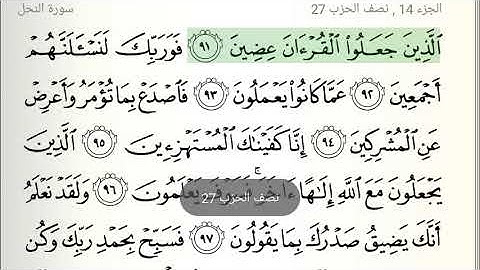 الجزء 14 , نصف الحزب 27 سورة النحل
ٱلَّذِينَ جَعَلُوا۟ ٱلْقُرْءَانَ عِضِينَ ٩١ فَوَرَبِّكَ لَنَسْـَٔلَنَّهُمْ
أَجْمَعِينَ ٩٢ عَمَّا كَانُوا۟ يَعْمَلُونَ ٩٣ فَٱصْدَعْ بِمَا تُؤْمَرُ وَأَعْرِضْ
عَنِ ٱلْمُشْرِكِينَ ٩٤ إِنَّا كَفَيْنَٰكَ ٱلْمُسْتَهْزِءِينَ ٩٥ ٱلَّذِينَ
يَجْعَلُونَ مَعَ ٱللَّهِ إِلَٰهًا ءَاخَرَ فَسَوْفَ يَعْلَمُونَ ٩٦ وَلَقَدْ نَعْلَمُ
نصف الحزب 27
أَنَّكَ يَضِيقُ صَدْرُكَ بِمَا يَقُولُونَ ٩٧ فَسَبِّحْ بِحَمْدِ رَبِّكَ وَكُن